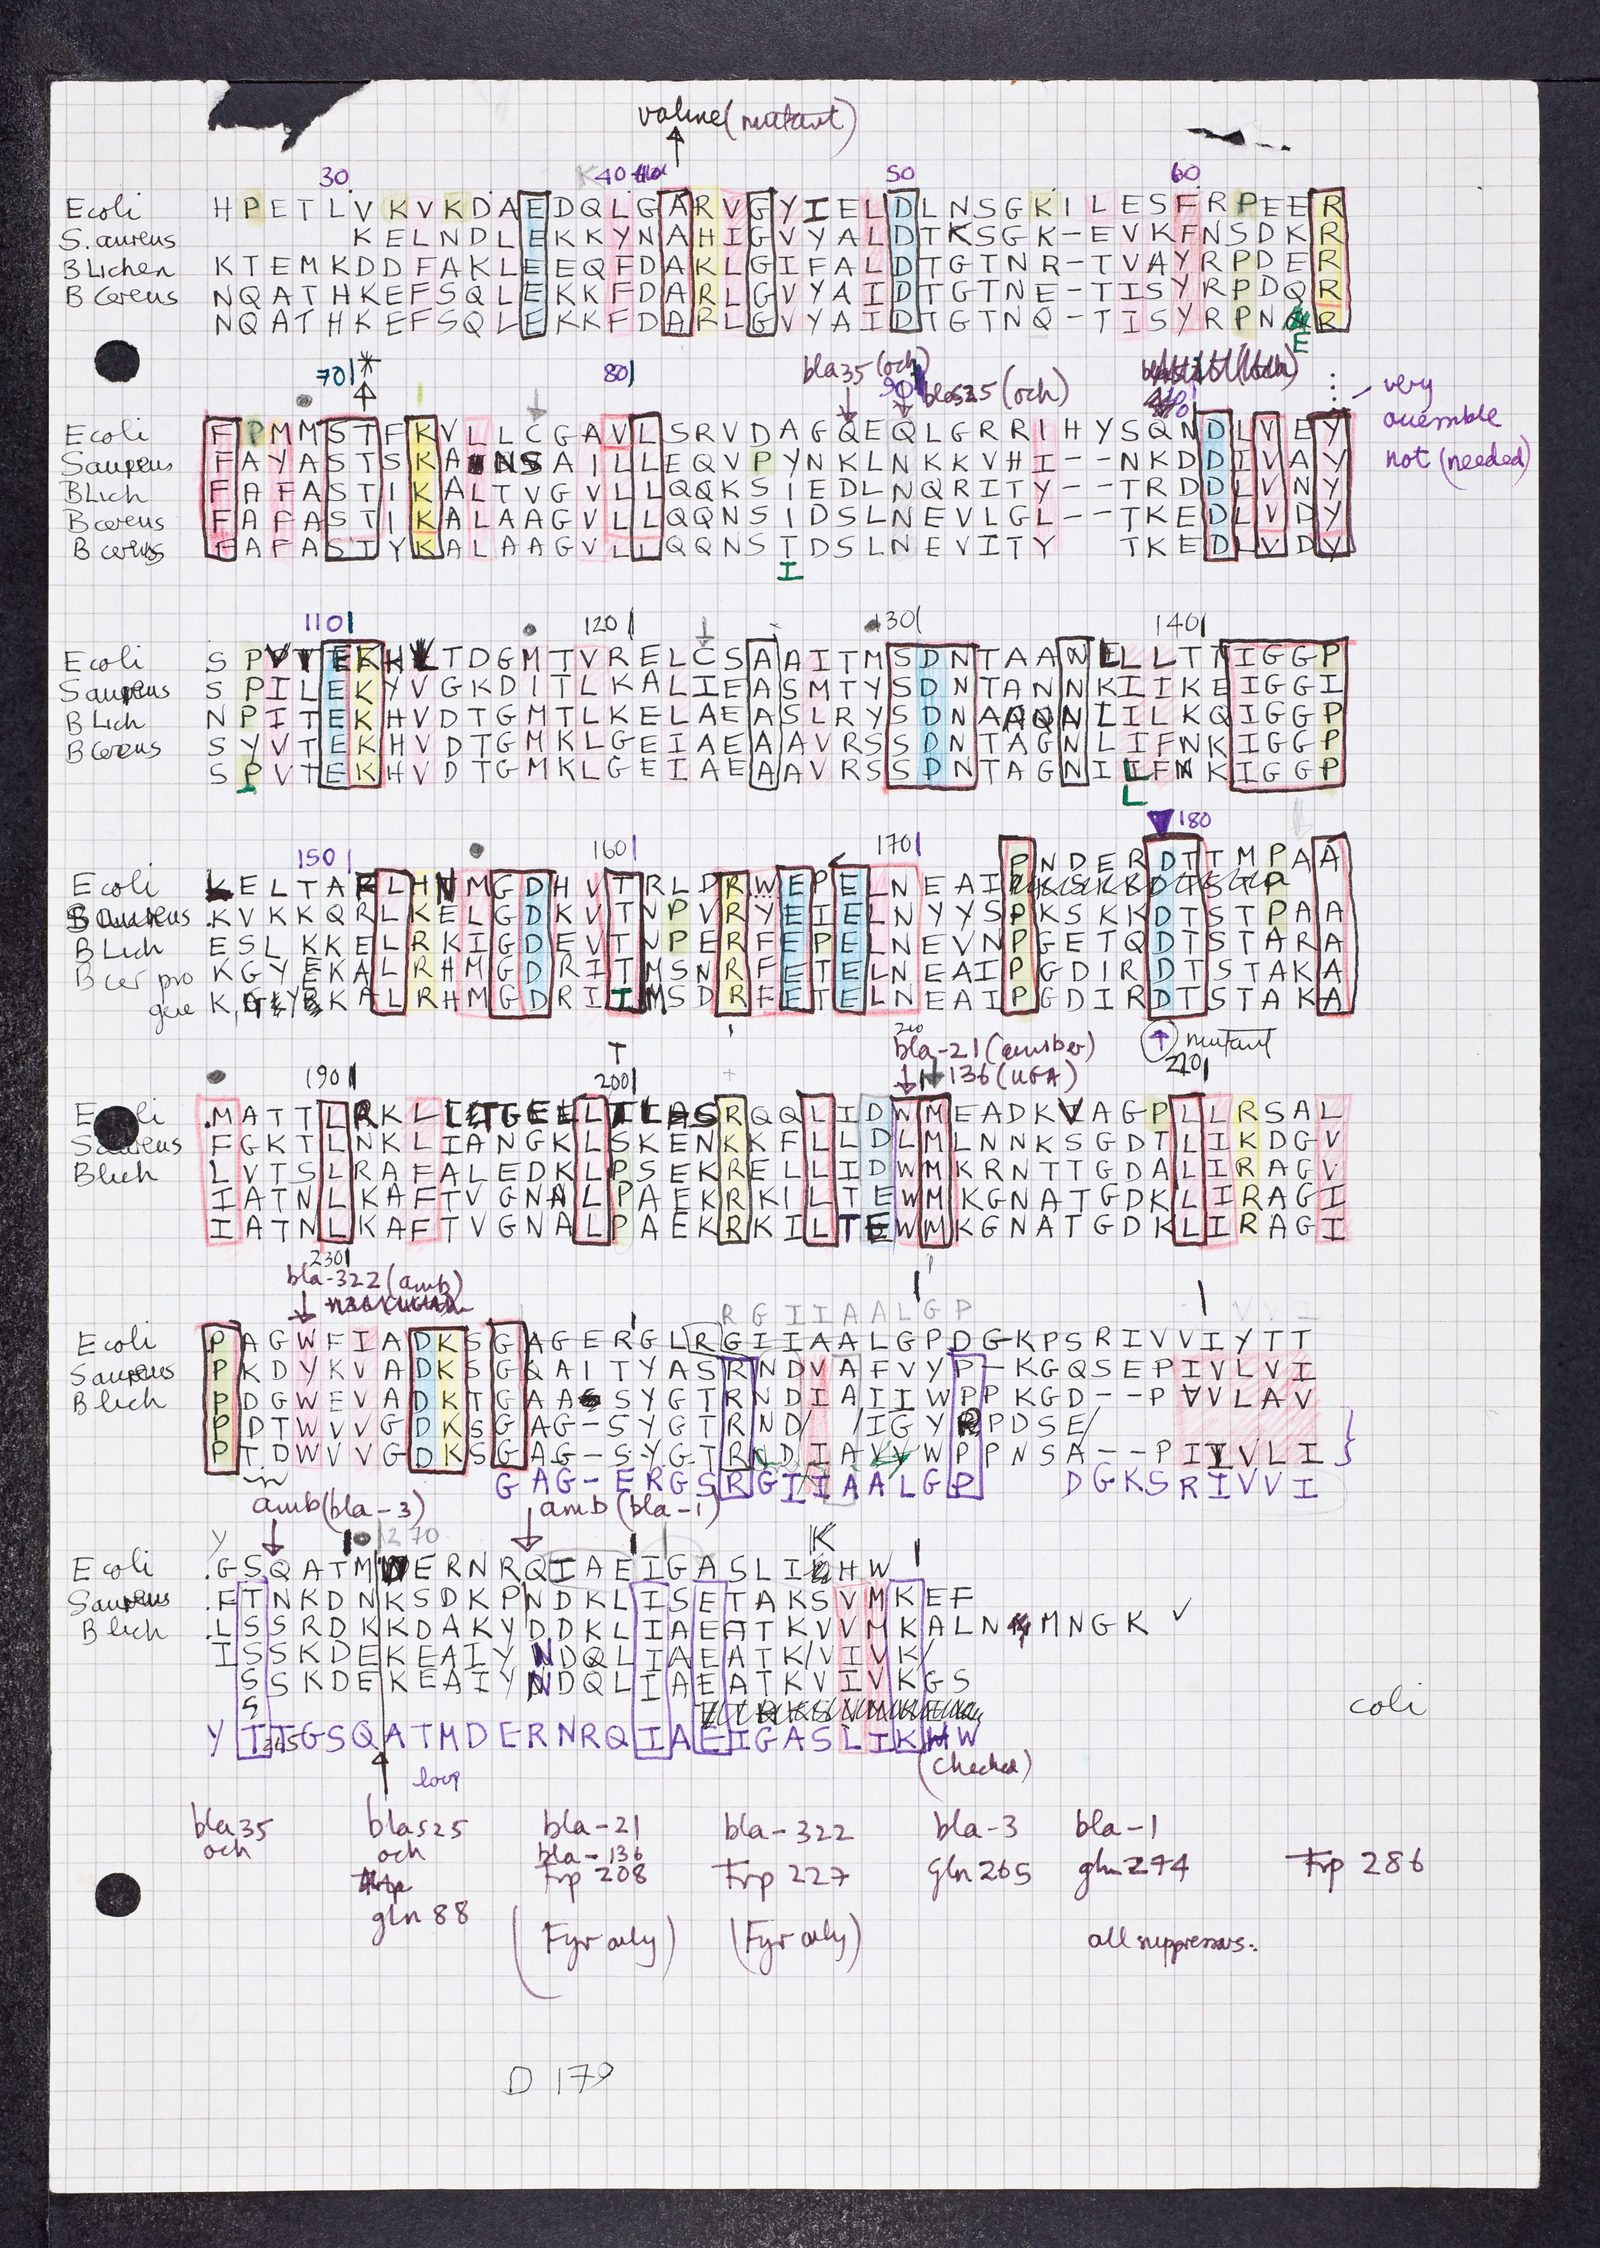 valine (mutant)
30 40 50 60
Ecoli HPETLVKVKDAEDQLGARVGYIELDLNSGKILESFRPEER
S. aureus KELNDLEKKYNAHIGVYALDTKSGK-EVKFNSDKR
BLichen KTEMKDDFAKLEEQFDAKLGIFALDTGTNR-TVAYRPDER
B Cereus NQATHKEFSQLEKKFDARLGVYAIDTGTNE-TISYRPDQR
NQATHKEFSQLEKKFDARLGVYAIDTGTNQ-TISYRPN R
E
70 * 80 bla35 (och) 90 blas25 (och)
very
not (needed)
Ecoli FPMMSTFKVLLCGAVLSRVDAGQEQLGRRIHYSQNDLVEY
Saureus FAYASTSKA NSAILLEQVPYNKLNKKVHI--NKDDIVAY
BLich FAFASTIKALTVGVLLQQKSIEDLNQRITY--TRDDLVNY
Bcereus FAFASTIKALAAGVLLQQNSIDSLNEVLGL--TKEDLVDY
Bcereus FAFASTYKALAAGVLLQQNSTDSLNEVITY TKEDLVDY
I
110 120 130 140
Ecoli SPVTEKHLTDGMTVRELCSAAITMSDNTAANLLLTTIGGP
Saureus SPILEKYVGKDITLKALIEASMTYSDNTANNKIIKEIGGI
BLich NPITEKHVDTGMTLKELAEASLRYSDNAAQNLILKQIGGP
Bcereus SYVTEKHVDTGMKLGEIAEAAVRSSDNTAGNLIFNKIGGP
SPVTEKHVDTGMKLGEIAEAAVRSSDNTAGNILFNKIGGP
I L
150 160 170 180
PNDERDTTMPAA
Ecoli KELTAFLHNMGDHVTRLDRWEPELNEAI
S aureus KVKKQRLKELGDKVTNPVRYEIELNYYSPKSKKDTSTPAA
BLich ESLKKELRKIGDEVTNPERFEPELNEVNPGETQDTSTARA
Bcer pro KGYEKALRHMGDRITMSNRFETELNEAIPGDIRDTSTAKA
gene KGYEKALRHMGDRITMSDRFETELNEAIPGDIRDTSTAKA
210
bla-21 (amber) mutant
T 136 (UGA)
190 200 210
Ecoli MATTLRKLLTGELLTLASRQQLIDWMEADKVAGPLLRSAL
Saureus FGKTLNKLIANGKLSKENKKFLLDLMLNNKSGDTLIKDGV
Blich LVTSLRAFALEDKLPSEKRELLIDWMKRNTTGDALIRAGV
IATNLKAFTVGNALPAEKRKILTEWMKGNATGDKLIRAGI
IATNLKAFTVGNALPAEKRKILTEWMKGNATGDKLIRAGI
230
bla-322 (amb)
RGIIAALGP VVI
Ecoli PAGWFIADKSGAGERGLRGIIAALGPDGKPSRIVVIYTT
Saureus PKDYKVADKSGQAITYASRNDVAFVYP-KGQSEPIVLVI
Blich PDGWEVADKTGAA SYGTRNDIAIIWPPKGD--PVVLAV
PDTWVVGDKSGAG-SYGTRND/ /IGYRPDSE/
PTDWVVGDKSGAG-SYGTRNDIAVVWPPNSA--PIIVLI
GAG-ERGSRGIIAALGP DGKSRIVVI
amb (bla-3) amb (bla-1)
Y 270 K
Ecoli GSQATMDERNRQIAEIGASLI HW
Saureus FTNKDNKSDKPNDKLISETAKSVMKEF
Blich LSSRDKKDAKYDDKLIAEATKVVMKALN MNGK ✓
ISSKDEKEAIYNDQLIAEATK/VIVK/
SSKDEKEAIYNDQLIAEATKVIVKGS
S
coli
Y TTGSQATMDERNRQIAEIGASLIKHW
265
loop (checked)
bla35 blas25 bla-21 bla-322 bla-3 bla-1
och och bla-136
Trp 208 Trp 227 gln 265 gln 274 Trp 286
gln 88
(Tyr only) (Tyr only) all suppressors.
D 179